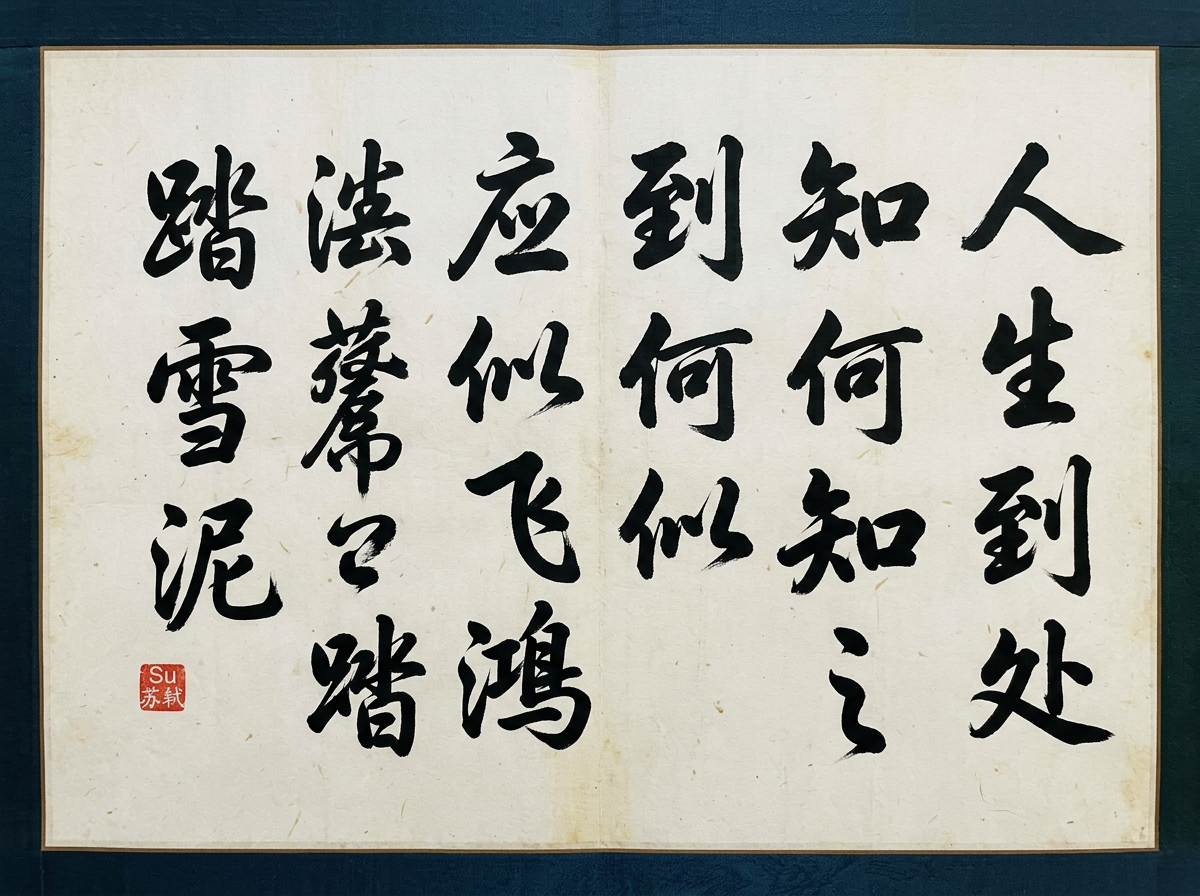 人生到处
知何知之
到何似
应似飞鸿
踏
踏雪泥
Su
苏轼